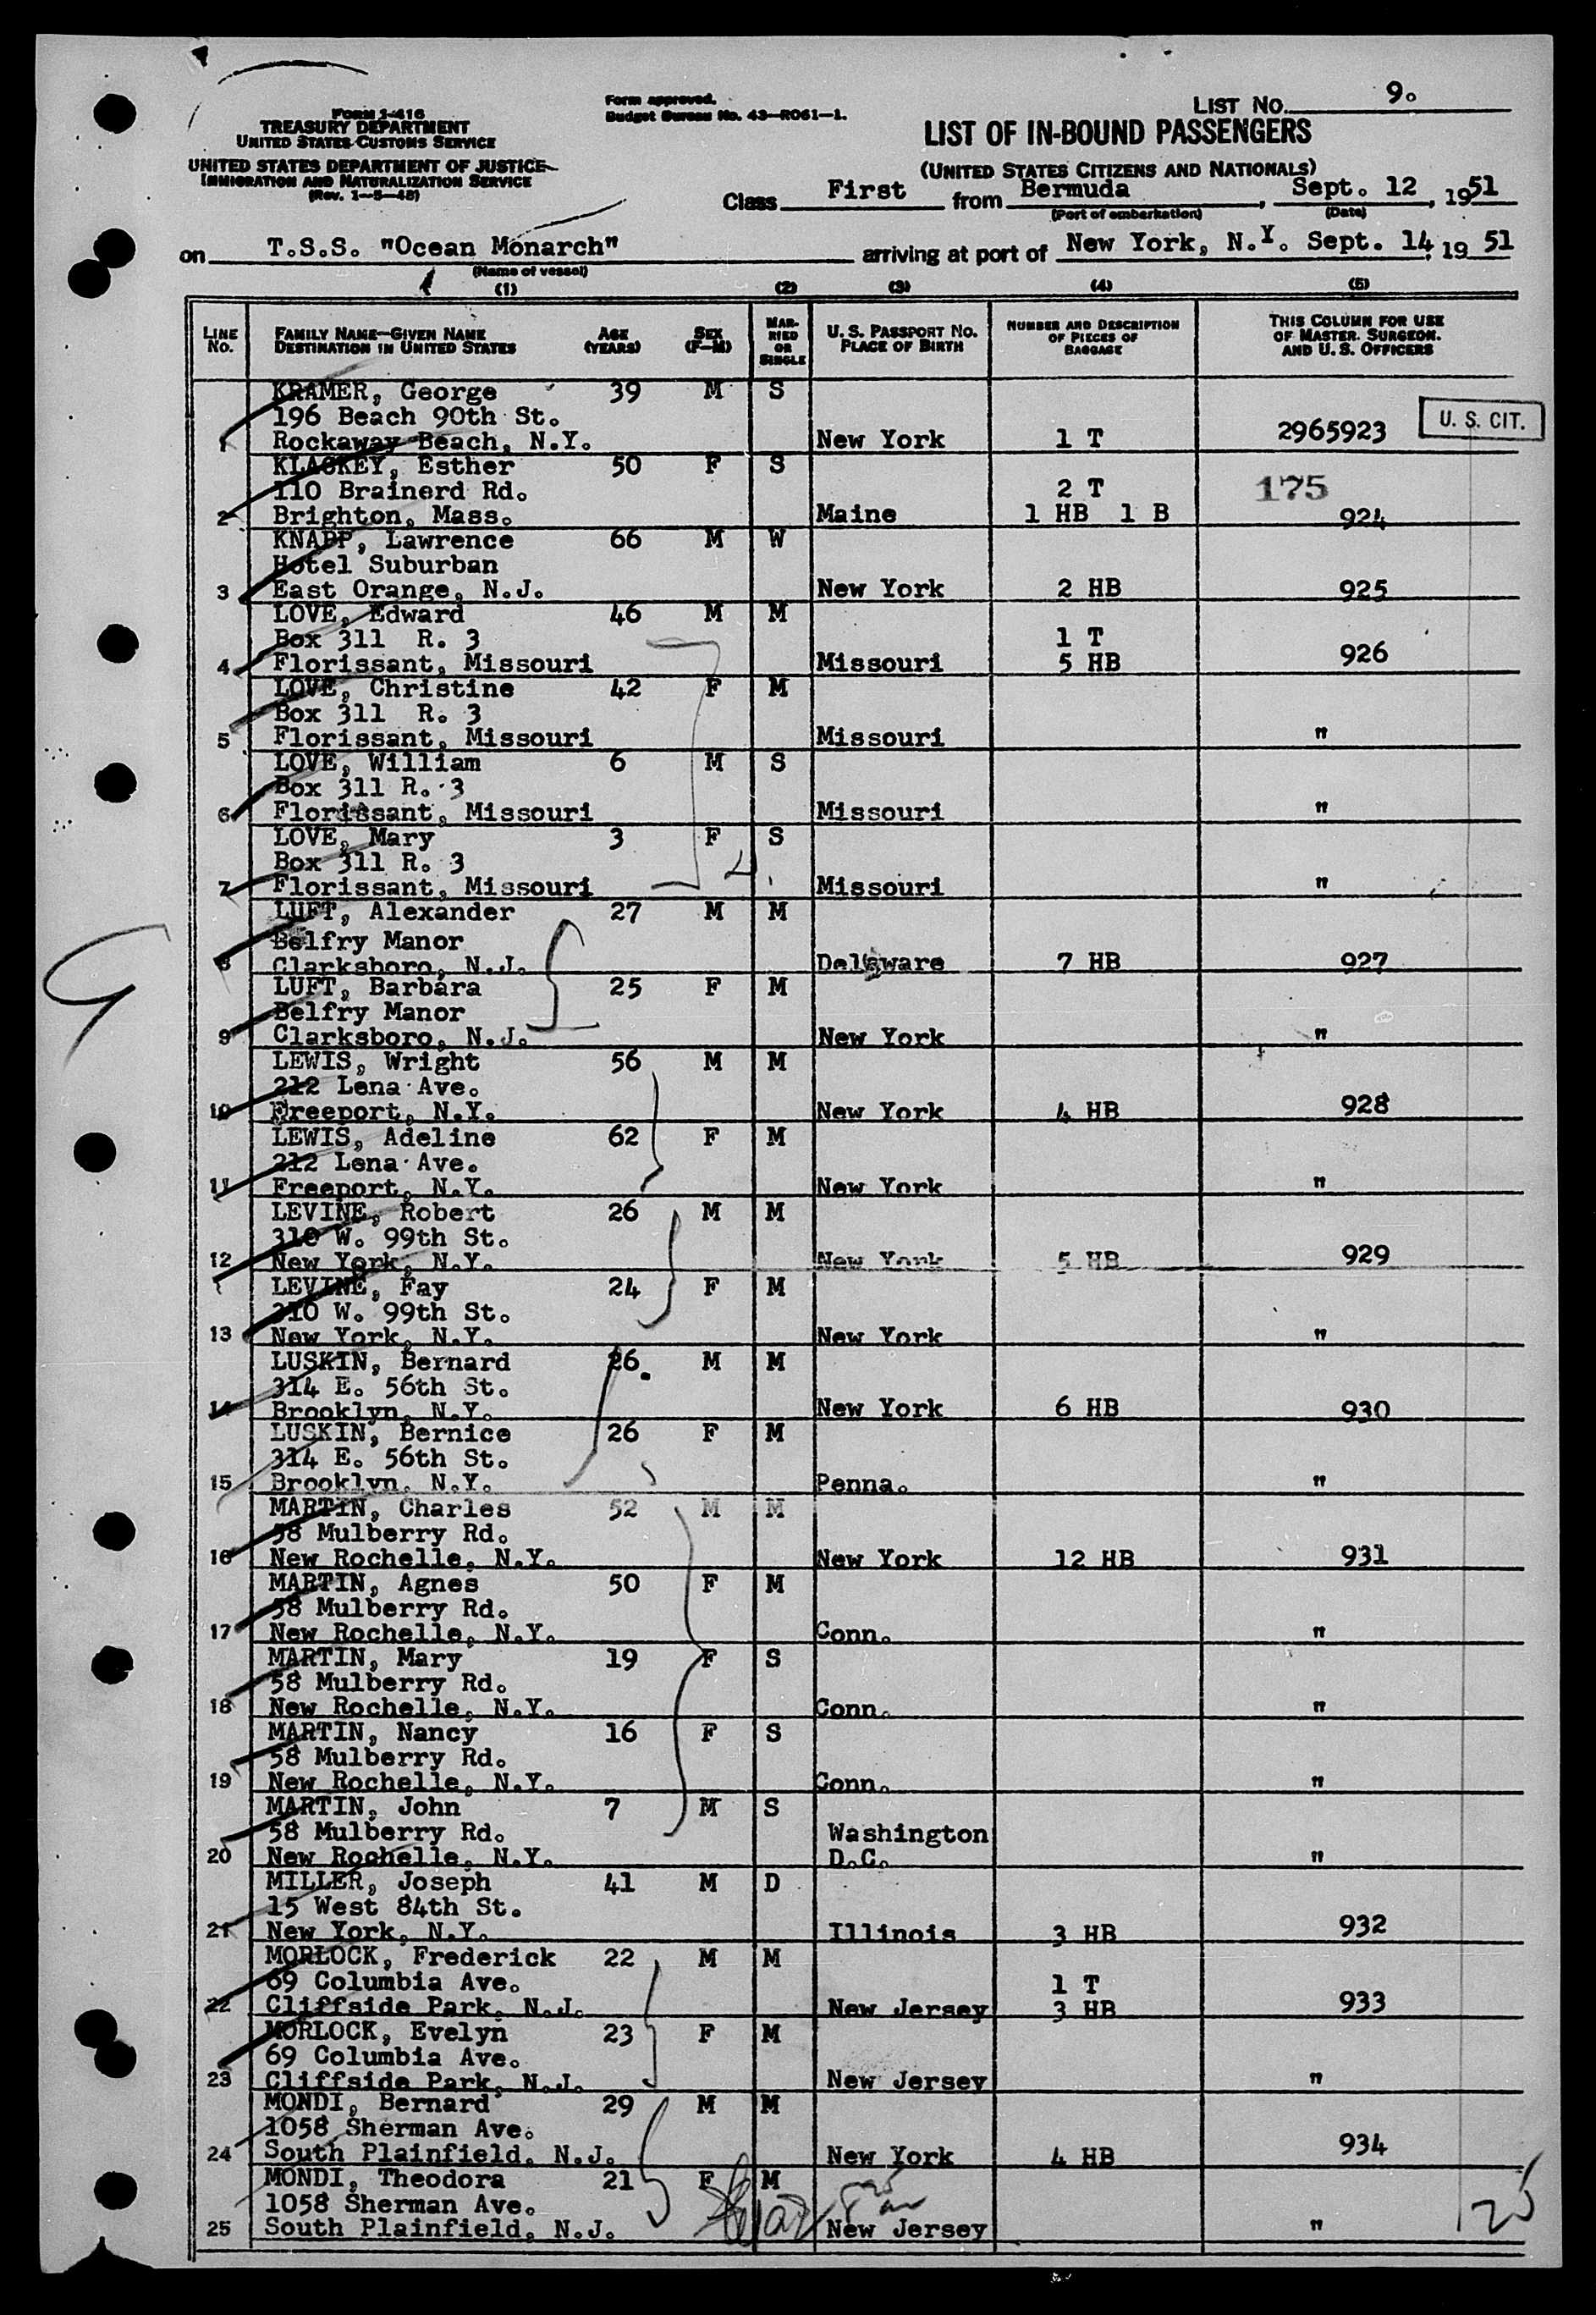 Form I-416
TREASURY DEPARTMENT
UNITED STATES CUSTOMS SERVICE
UNITED STATES DEPARTMENT OF JUSTICE
IMMIGRATION AND NATURALIZATION SERVICE
(Rev. 1-5-48)
Form approved.
Budget Bureau No. 43-R061-1.
LIST NO. 9.
LIST OF IN-BOUND PASSENGERS
(UNITED STATES CITIZENS AND NATIONALS)
Class First from Bermuda, Sept. 12, 1951
(Port of embarkation) (Date)
on T.S.S. "Ocean Monarch" arriving at port of New York, N.Y. Sept. 14, 1951
(Name of vessel)
(1) (2) (3) (4) (5)
LINE NO. FAMILY NAME—GIVEN NAME DESTINATION IN UNITED STATES AGE (YEARS) SEX (F-M) MARRIED OR SINGLE U. S. PASSPORT NO. PLACE OF BIRTH NUMBER AND DESCRIPTION OF PIECES OF BAGGAGE THIS COLUMN FOR USE OF MASTER, SURGEON, AND U. S. OFFICERS
KRAMER, George 39 M S
196 Beach 90th St.
1 Rockaway Beach, N.Y. New York 1 T 2965923 U. S. CIT.
KLACKEY, Esther 50 F S
110 Brainerd Rd. 2 T 175
2 Brighton, Mass. Maine 1 HB 1 B 924
KNAPP, Lawrence 66 M W
Hotel Suburban
3 East Orange, N.J. New York 2 HB 925
LOVE, Edward 46 M M
Box 311 R. 3 1 T
4 Florissant, Missouri Missouri 5 HB 926
LOVE, Christine 42 F M
Box 311 R. 3
5 Florissant, Missouri Missouri "
LOVE, William 6 M S
Box 311 R. 3
6 Florissant, Missouri Missouri "
LOVE, Mary 3 F S
Box 311 R. 3 4
7 Florissant, Missouri Missouri "
LUFT, Alexander 27 M M
Belfry Manor
8 Clarksboro, N.J. Delaware 7 HB 927
LUFT, Barbara 25 F M
Belfry Manor
9 Clarksboro, N.J. New York "
LEWIS, Wright 56 M M
212 Lena Ave.
10 Freeport, N.Y. New York 4 HB 928
LEWIS, Adeline 62 F M
212 Lena Ave.
11 Freeport, N.Y. New York "
LEVINE, Robert 26 M M
310 W. 99th St.
12 New York, N.Y. New York 5 HB 929
LEVINE, Fay 24 F M
310 W. 99th St.
13 New York, N.Y. New York "
LUSKIN, Bernard 26 M M
314 E. 56th St.
14 Brooklyn, N.Y. New York 6 HB 930
LUSKIN, Bernice 26 F M
314 E. 56th St.
15 Brooklyn, N.Y. Penna. "
MARTIN, Charles 52 M M
58 Mulberry Rd.
16 New Rochelle, N.Y. New York 12 HB 931
MARTIN, Agnes 50 F M
58 Mulberry Rd.
17 New Rochelle, N.Y. Conn. "
MARTIN, Mary 19 F S
58 Mulberry Rd.
18 New Rochelle, N.Y. Conn. "
MARTIN, Nancy 16 F S
58 Mulberry Rd.
19 New Rochelle, N.Y. Conn. "
MARTIN, John 7 M S
58 Mulberry Rd. Washington
20 New Rochelle, N.Y. D.C. "
MILLER, Joseph 41 M D
15 West 84th St.
21 New York, N.Y. Illinois 3 HB 932
MORLOCK, Frederick 22 M M
69 Columbia Ave. 1 T
22 Cliffside Park, N.J. New Jersey 3 HB 933
MORLOCK, Evelyn 23 F M
69 Columbia Ave.
23 Cliffside Park, N.J. New Jersey "
MONDI, Bernard 29 M M
1058 Sherman Ave.
24 South Plainfield, N.J. New York 4 HB 934
MONDI, Theodora 21 F M
1058 Sherman Ave.
25 South Plainfield, N.J. New Jersey " 25